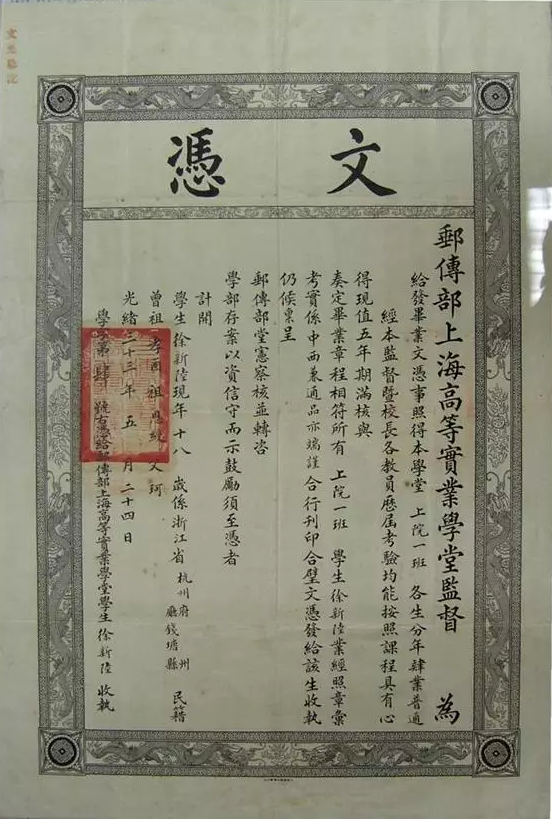 文憑
郵傳部上海高等實業學堂監督 為
給發畢業文憑事照得本學堂 上院一班 各生分年肄業普通
經本監督暨校長各教員歷屆考驗均能按照課程具有心
得現值五年期滿核與
奏定畢業章程相符所有 上院一班 學生徐新陸業經照章彙
考實係中西兼通品亦端謹 合行刊印合璧文憑發給該生收執
仍候稟呈
郵傳部堂憲察核並轉咨
學部存案以資信守而示鼓勵須至憑者
計開
學生徐新陸現年十八 歲係浙江省 杭州府 州廳錢塘縣 民籍
曾祖 祖恩綬 父珂
光緒三十三年 五 月二十四日
學字第肆 號右憑給郵傳部上海高等實業學堂學生 徐新陸 收執